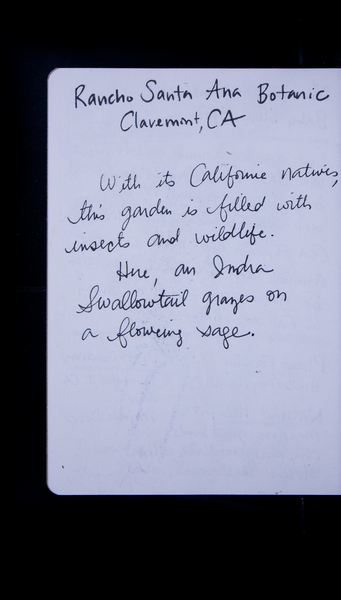 Rancho Santa Ana Botanic
Claremont, CA
With its California natives,
this garden is filled with
insects and wildlife.
Here, an Indra
Swallowtail grazes on
a flowering sage.